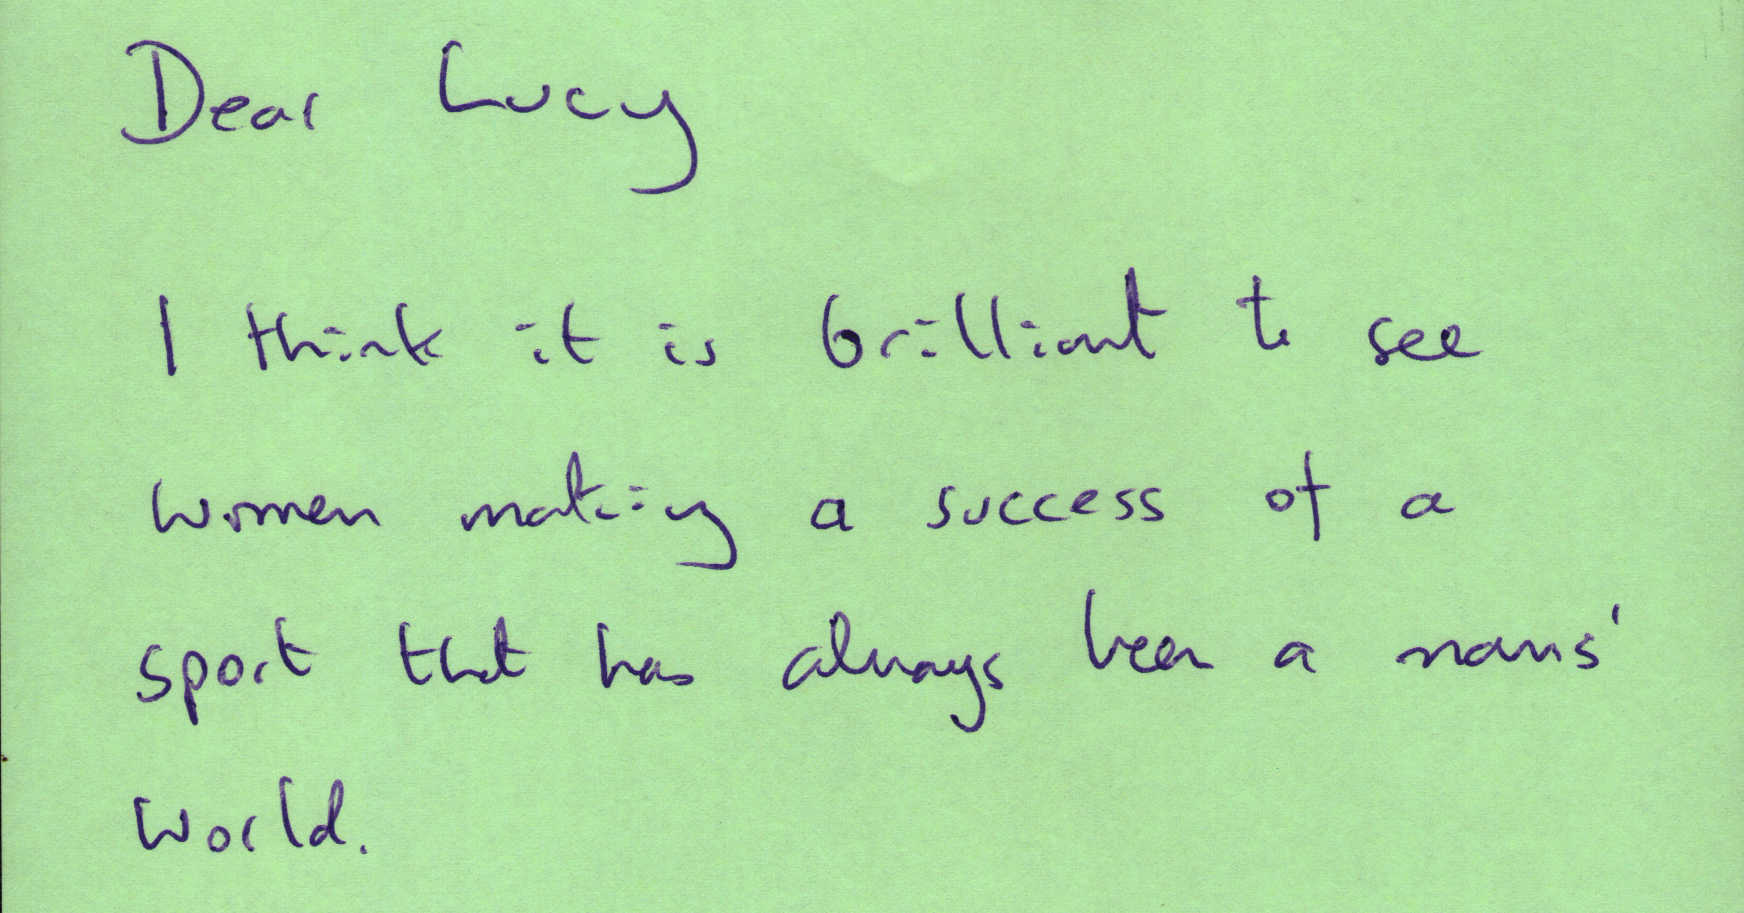 Dear Lucy
I think it is brilliant to see
women making a success of a
sport that has always been a mans'
world.